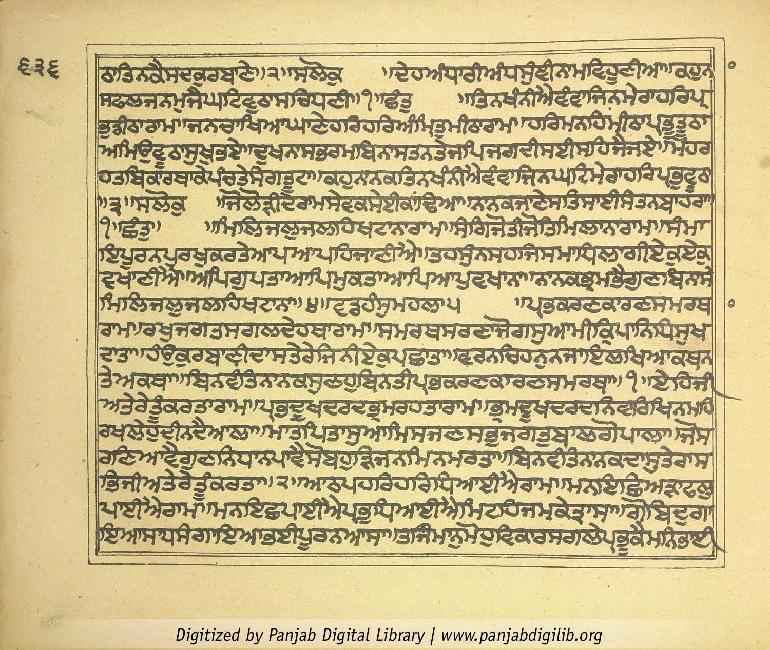 ੬੩੬
ਠਾਤਿਨਕੈਸਦਕੁਰਬਾਣੇ॥੨॥ਸਲੋਕੁ ॥ਦੇਹਅੰਧਾਰੀਅੰਧਸੁੰਞੀਨਾਮਵਿਹੂਣੀਆ॥ਕਹੁਨ
ਸਫਲਜਨਮੁਜੈਘਟਿਵੁਠਾਸਚਿਧਣੀ॥੧॥ਛੰਤੁ ॥ਤਿਨਖੰਨੀਐਵੰਞਾਜਿਨਮੇਰਾਹਰਿਪ੍ਰ
ਭੁਡੀਠਾਰਾਮ॥ਜਨਚਾਖਿਅਘਾਣੇਹਰਿਹਰਿਅੰਮ੍ਰਿਤੁਮੀਠਾਰਾਮ॥ਹਰਿਮਨਹਿਮੀਠਾਪ੍ਰਭੂਤੂਠਾ
ਅਮਿਉਵੂਠਾਸੁਖਭਏ॥ਦੁਖਨਾਸਭਰਮਬਿਨਾਸਤਨਤੇਜਪਿਜਗਦੀਸਈਸਹਿਜੈਜਏ॥ਮੋਹਰ
ਹਤਬਿਕਾਰਥਾਕੇਪੰਚਤੇਸੰਗਤੂਟਾ॥ਕਹੁਨਾਨਕਤਿਨਖੰਨੀਐਵੰਞਾਜਿਨਘਟਿਮੇਰਾਹਰਿਪ੍ਰਭੁਵੂਠਾ
॥੩॥ਸਲੋਕੁ ॥ਜੋਲੋੜੀਦੇਰਾਮਸੇਵਕਸੇਈਕਾਂਢਿਆ॥ਨਾਨਕਜਾਣੇਸਤਿਸਾਈਸੰਤਨਬਾਹਰਾ॥
੧॥ਛੰਤੁ॥ ॥ਮਿਲਿਜਲੁਜਲਹਿਖਟਾਨਾਰਾਮ॥ਸੰਗਿਜੋਤੀਜੋਤਿਮਿਲਾਨਾਰਾਮ॥ਸੰਮਾ
ਇਪੂਰਨਪੁਰਖਕਰਤੇਆਪਆਪਹਿਜਾਣੀਐ॥ਤਹਸੁੰਨਸਹਜਿਸਮਾਧਿਲਾਗੀਏਕੁਏਕੁ
ਵਖਾਣੀਐ॥ਆਪਿਗੁਪਤਾਆਪਿਮੁਕਤਾਆਪਿਆਪੁਵਖਾਨਾ॥ਨਾਨਕਭ੍ਰਮਭੈਗੁਣਬਿਨਸੇ
ਮਿਲਿਜਲੁਜਲਹਿਖਟਾਨਾ॥੪॥੨॥ਵਡਹੰਸੁਮਹਲਾ੫ ॥ਪ੍ਰਭਕਰਣਕਾਰਣਸਮਰਥ
ਰਾਮ॥ਰਖੁਜਗਤਸਗਲਦੇਹਥਾਰਾਮ॥ਸਮਰਥਸਰਣਾਜੋਗਸੁਆਮੀਕ੍ਰਿਪਾਨਿਧਿਸੁਖ
ਦਾਤਾ॥ਹੰਉਕੁਰਬਾਣੀਦਾਸਤੇਰੇਜਿਨੀਏਕੁਪਛਾਤਾ॥ਵਰਨਚਿਹਨੁਨਜਾਇਲਖਿਆਕਥਨ
ਤੇਅਕਥਾ॥ਬਿਨਵੰਤਿਨਾਨਕਸੁਣਹੁਬਿਨਤੀਪ੍ਰਭਕਰਣਕਾਰਣਸਮਰਥਾ॥੧॥ਏਹਿਜੀ
ਅਤੇਰੇਤੂੰਕਰਤਾਰਾਮ॥ਪ੍ਰਭਦੂਖਦਰਦਭ੍ਰਮਹਰਤਾਰਾਮ॥ਭ੍ਰਮਦੂਖਦਰਦਨਿਵਾਰਿਖਿਨਮਹਿ
ਰਖਿਲੇਹੁਦੀਨਦੈਆਲਾ॥ਮਾਤਪਿਤਾਸੁਆਮਿਸਜਣਸਭੁਜਗਤੁਬਾਲਗੋਪਾਲਾ॥ਜੋਸ
ਰਣਿਆਵੈਗੁਣਨਿਧਾਨਪਾਵੈਸੋਬਹੁੜਿਜਨਮਿਨਮਰਤਾ॥ਬਿਨਵੰਤਿਨਾਨਕਦਾਸੁਤੇਰਾਸ
ਭਿਜੀਅਤੇਰੇਤੂੰਕਰਤਾ॥੨॥ਆਠਪਹਰਹਰਿਧਿਆਈਐਰਾਮ॥ਮਨਇਛਿਅੜਾਫਲੁ
ਪਾਈਐਰਾਮ॥ਮਨਇਛਪਾਈਐਪ੍ਰਭੁਧਿਆਈਐਮਿਟਹਿਜਮਕੇਤ੍ਰਾਸਾ॥ਗੋਬਿਦੁਗਾ
ਇਆਸਾਧਸੰਗਾਇਆਭਈਪੂਰਨਆਸਾ॥ਤਜਿਮਾਨੁਮੋਹੁਵਿਕਾਰਸਗਲੇਪ੍ਰਭੂਕੈਮਨਿਭਾਈ
Digitized by Panjab Digital Library | www.panjabdigilib.org